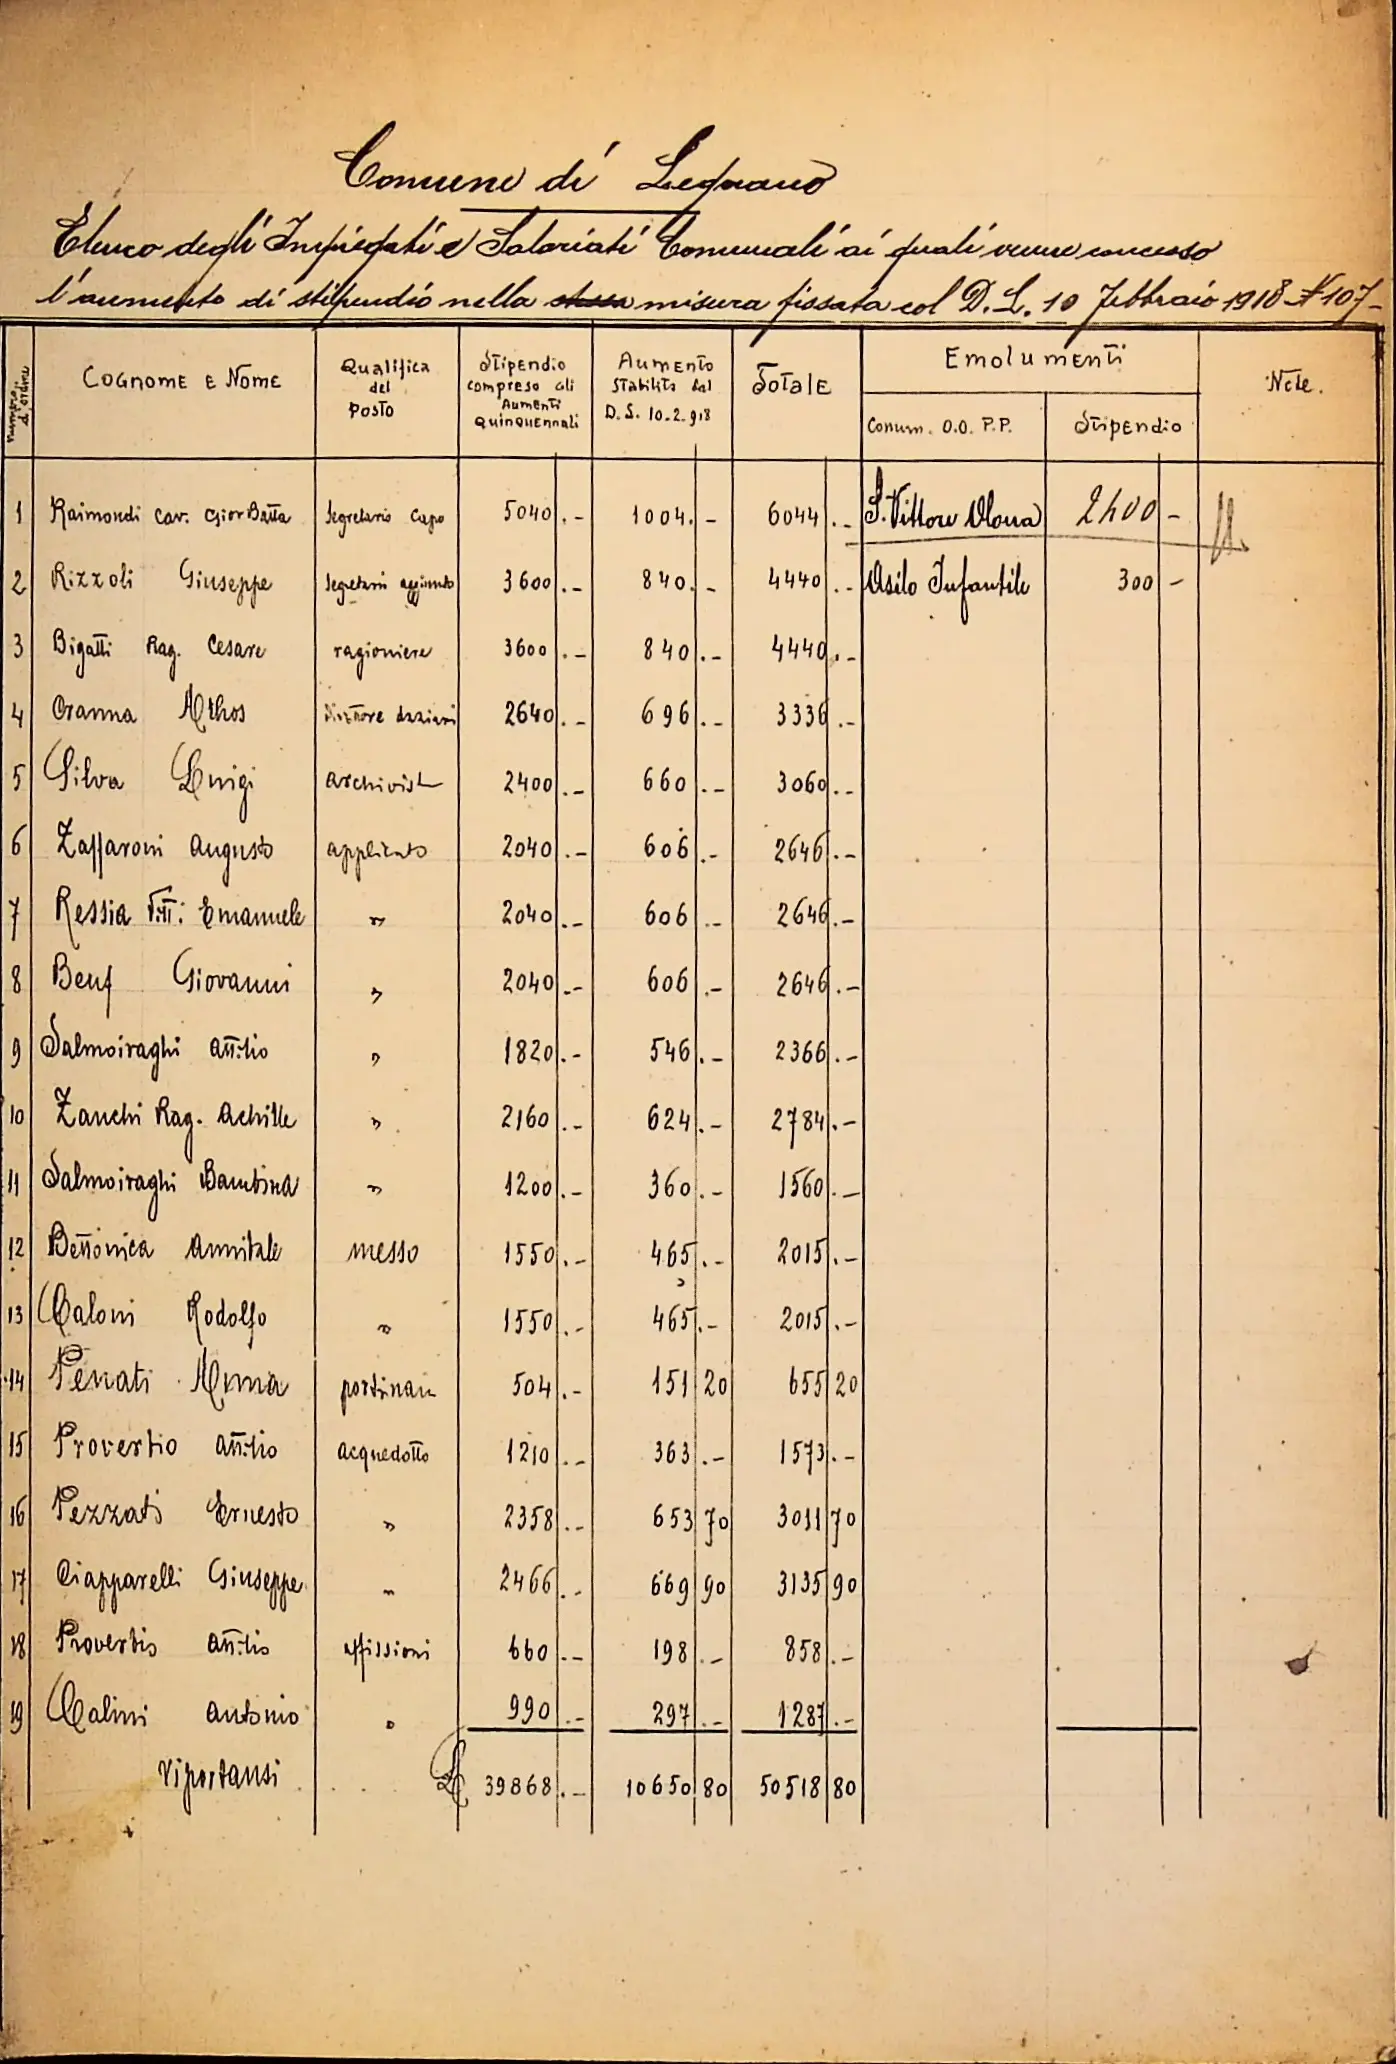 Comune di Legnano
Elenco degli Impiegati e Salariati Comunali ai quali venne concesso
l'aumento di stipendio nella stessa misura fissata col D. L. 10 febbraio 1918 N 107-
Numero d'ordine | COGNOME E NOME | Qualifica del Posto | Stipendio compreso gli Aumenti Quinquennali | Aumento Stabilito dal D. L. 10-2-918 | Totale | Emolumenti | Note.
Comun. O.O. P.P. | Stipendio
1 Raimondi Cav. Gior Batta Segretario Capo 5040.- 1004.- 6044.- S. Vittore Olona 2400 -
2 Rizzoli Giuseppe Segretario aggiunto 3600.- 840.- 4440.- Asilo Infantile 300 -
3 Bigatti Rag. Cesare ragioniere 3600.- 840.- 4440.-
4 Oranna Athos 2640.- 696.- 3336.-
5 Silva Luigi archivist 2400.- 660.- 3060.-
6 Zaffaroni Augusto applicato 2040.- 606.- 2646.-
7 Ressia Emanuele " 2040.- 606.- 2646.-
8 Beuf Giovanni " 2040.- 606.- 2646.-
9 Salmoiraghi Attilio " 1820.- 546.- 2366.-
10 Zanchi Rag. Achille " 2160.- 624.- 2784.-
11 Salmoiraghi Bambina " 1200.- 360.- 1560.-
12 Bettonica Annibale messo 1550.- 465.- 2015.-
13 Caloni Rodolfo " 1550.- 465.- 2015.-
14 Penati Anna portinaia 504.- 151 20 655 20
15 Proverbio Attilio acquedotto 1210.- 363.- 1573.-
16 Pezzati Ernesto " 2358.- 653 70 3011 70
17 Ciapparelli Giuseppe " 2466.- 669 90 3135 90
18 Proverbio Attilio affissioni 660.- 198.- 858.-
19 Calini Antonio " 990.- 297.- 1287.-
Riportansi . . . L 39868.- 10650 80 50518 80